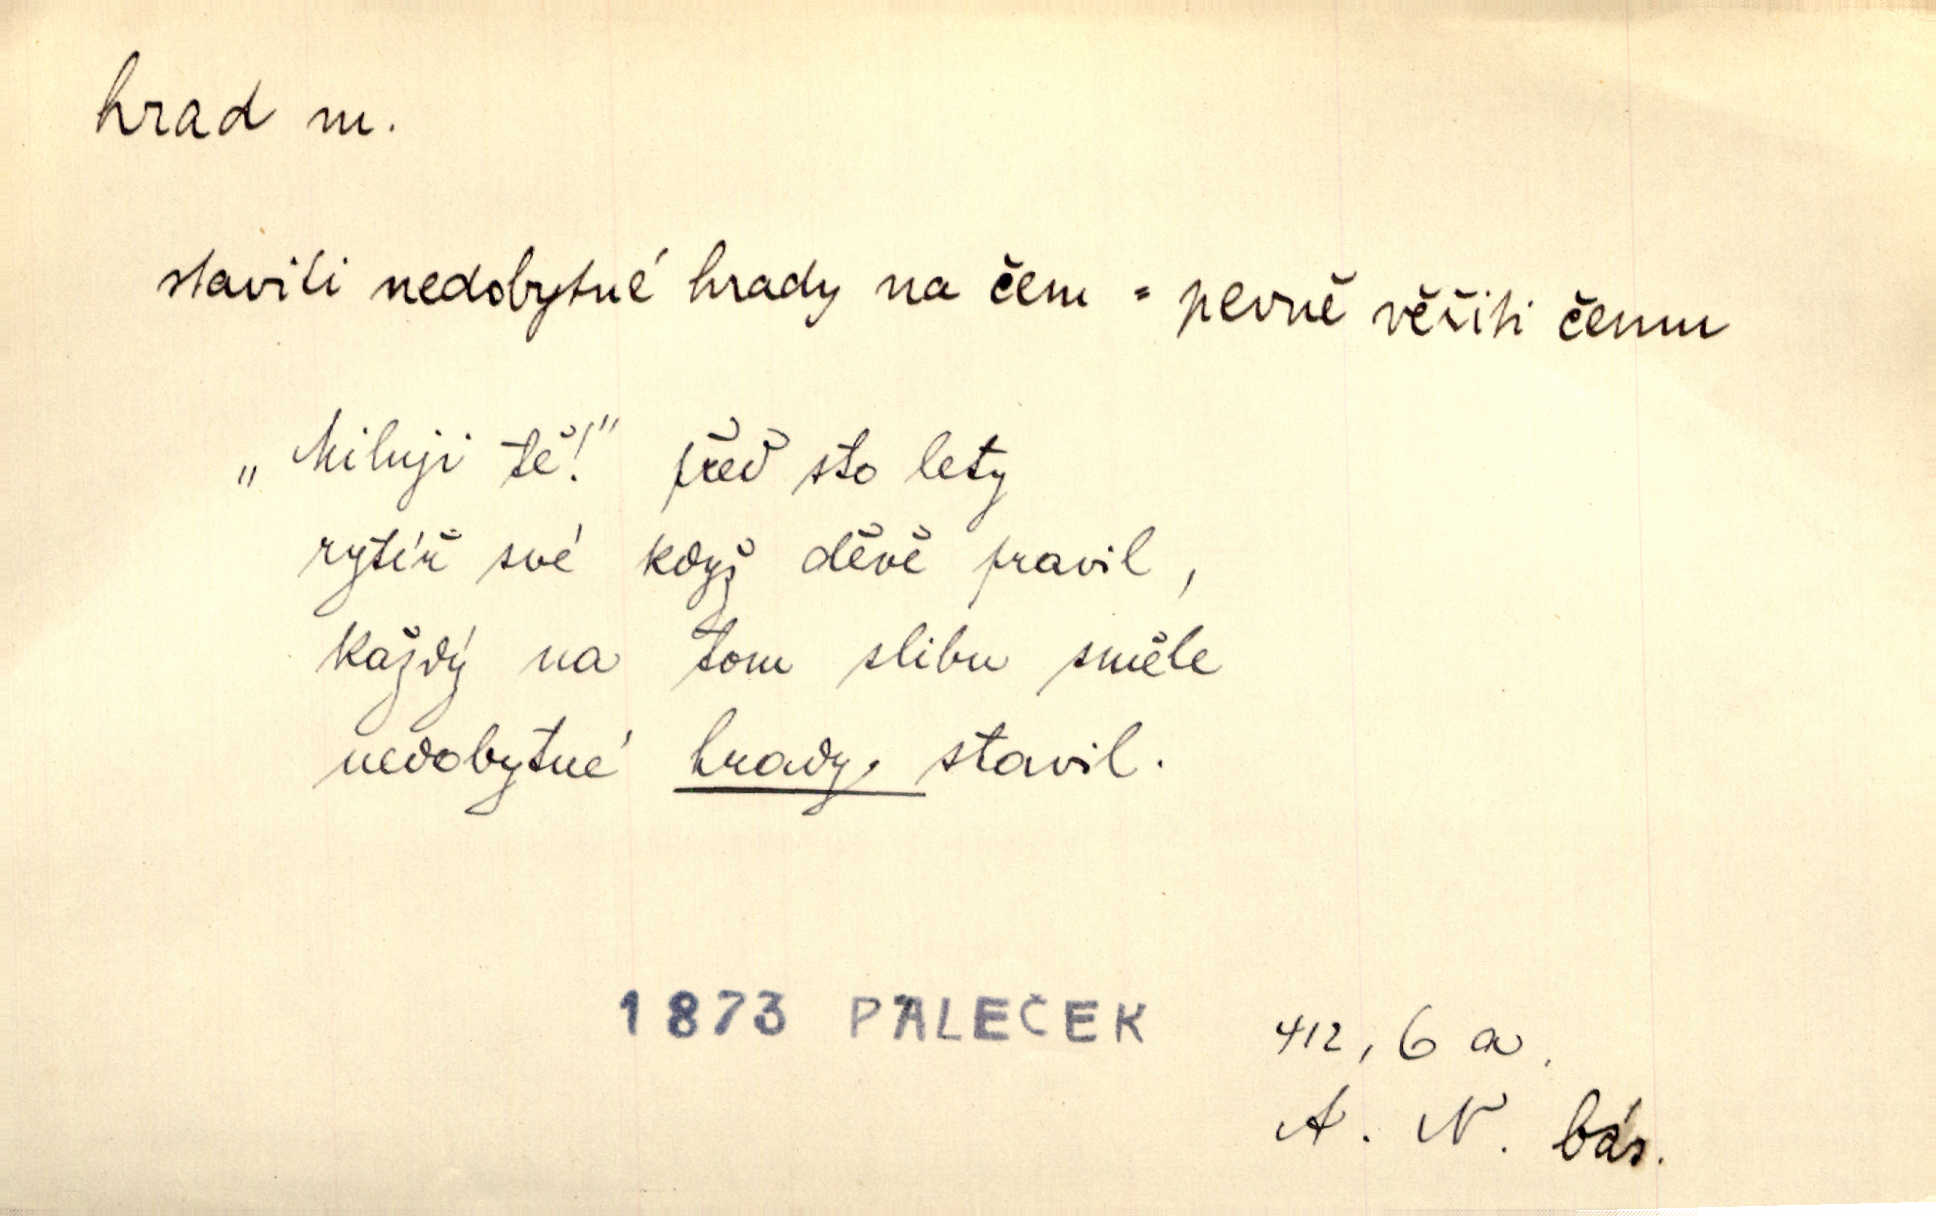 hrad m.
staviti nedobytné hrady na čem = pevně věřiti čemu
„Miluji tě!" před sto lety
rytíř své když děvě pravil,
každý na tom slibu směle
nedobytné hrady, stavil.
1873 PALEČEK
412, 6 a.
A. N. bás.